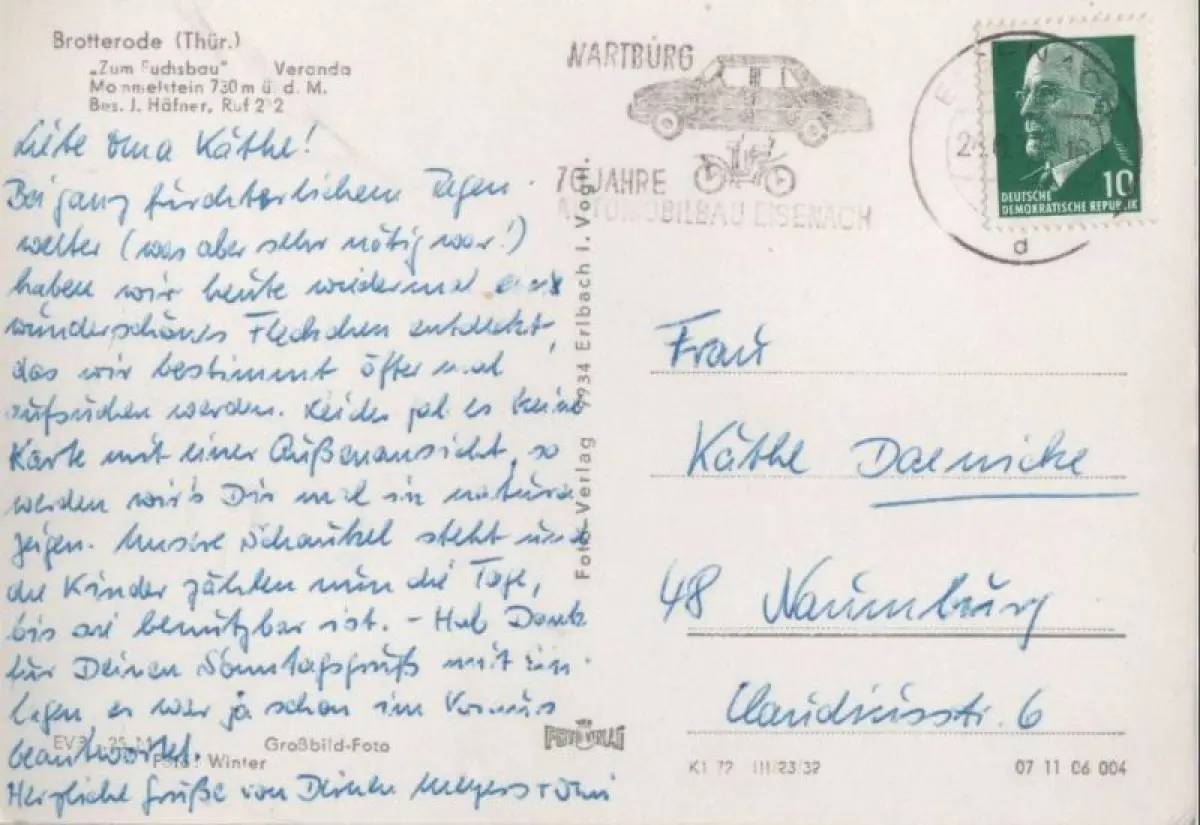 Brotterode (Thür.)
„Zum Fuchsbau" Veranda
Mommelstein 730 m ü. d. M.
Bes. J. Häfner, Ruf 212
WARTBURG
70 JAHRE
AUTOMOBILBAU EISENACH
EISENACH
d
10
DEUTSCHE
DEMOKRATISCHE REPUBLIK
Liebe Oma Käthe!
Bei ganz fürchterlichem Regen-
wetter (was aber sehr nötig war!)
haben wir heute wiedermal ein
wunderschönes Fleckchen entdeckt,
das wir bestimmt öfter mal
aufsuchen werden. Leider gab es keine
Karte mit einer Außenansicht, so
werden wir's Dir mal in natura
zeigen. Unsere Schaukel steht und
die Kinder zählen nun die Tage,
bis sie benutzbar ist. – Hab Dank
für Deinen Sonntagsgruß mit Ein-
lagen er war ja schon im Voraus
beantwortet.
Herzliche Grüße von Deinen
Foto-Verlag 9934 Erlbach i. Vogtl.
Frau
Käthe Daenicke
48 Naumburg
Claudiusstr. 6
Großbild-Foto
Foto: Winter
FOTO VERLAG
K1 72 III/23/32
07 11 06 004